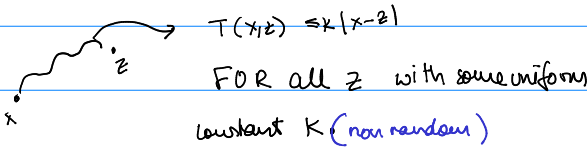 T(x,z) ≤ K|x-z|
z
FOR all z with some uniform
x
constant K. (non random)